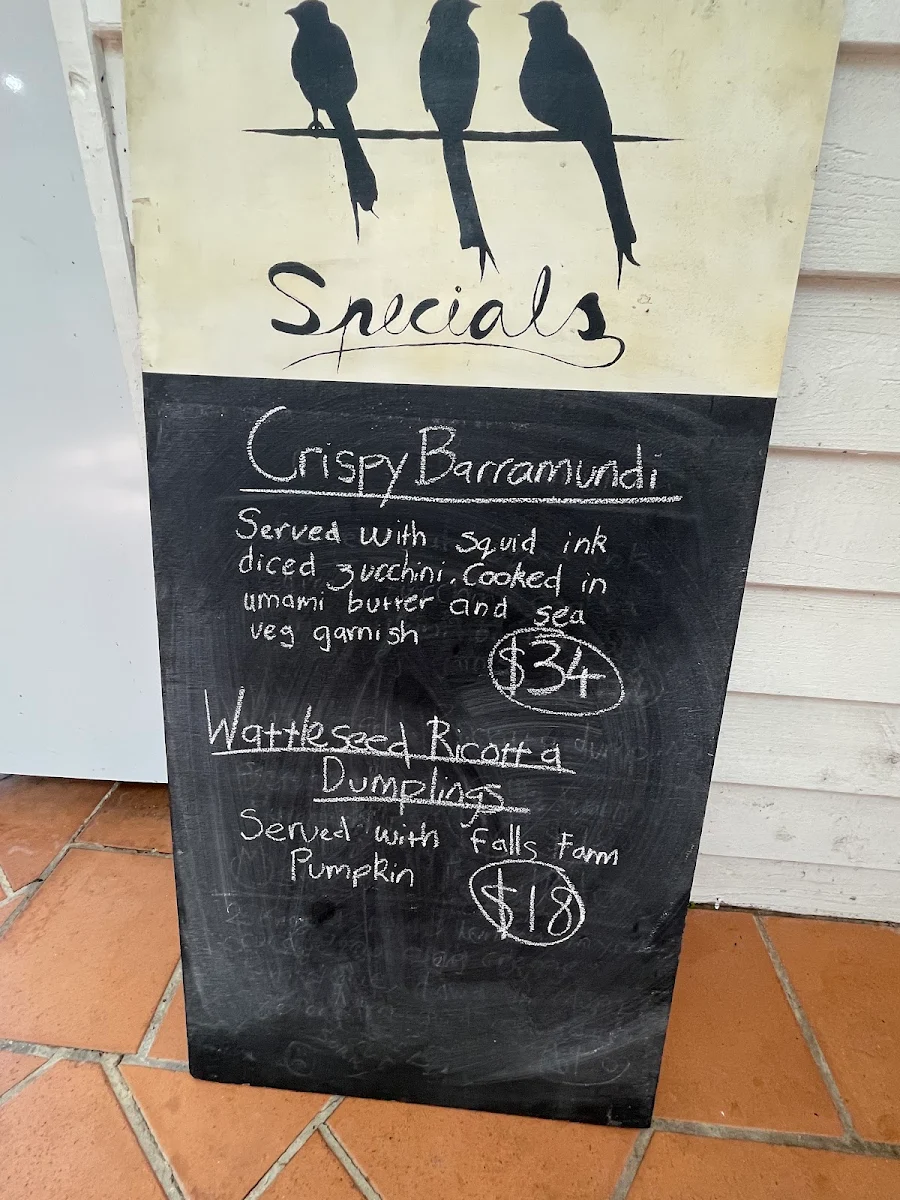 Specials
Crispy Barramundi
Served with squid ink
diced zucchini. Cooked in
umami butter and sea
veg garnish
$34
Wattleseed Ricotta
Dumplings
Served with Falls Farm
Pumpkin
$18